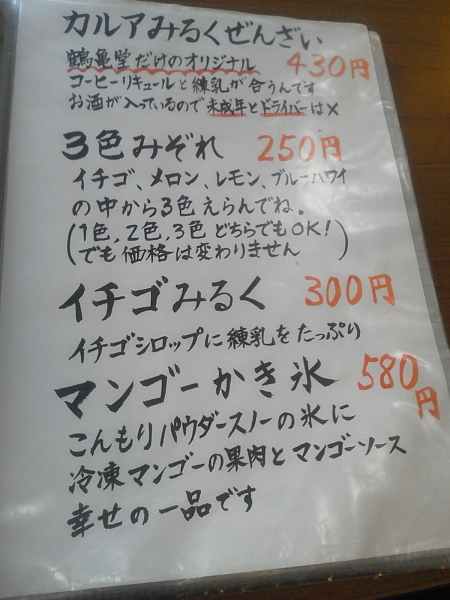 カルアみるくぜんざい
鶴亀堂だけのオリジナル 430円
コーヒーリキュールと練乳が合うんです
お酒が入っているので未成年とドライバーは×
3色みぞれ 250円
イチゴ、メロン、レモン、ブルーハワイ
の中から3色えらんでね。
(1色,2色,3色どちらでもOK!
でも価格は変わりません)
イチゴみるく 300円
イチゴシロップに練乳をたっぷり
マンゴーかき氷 580円
こんもりパウダースノーの氷に
冷凍マンゴーの果肉とマンゴーソース
幸せの一品です